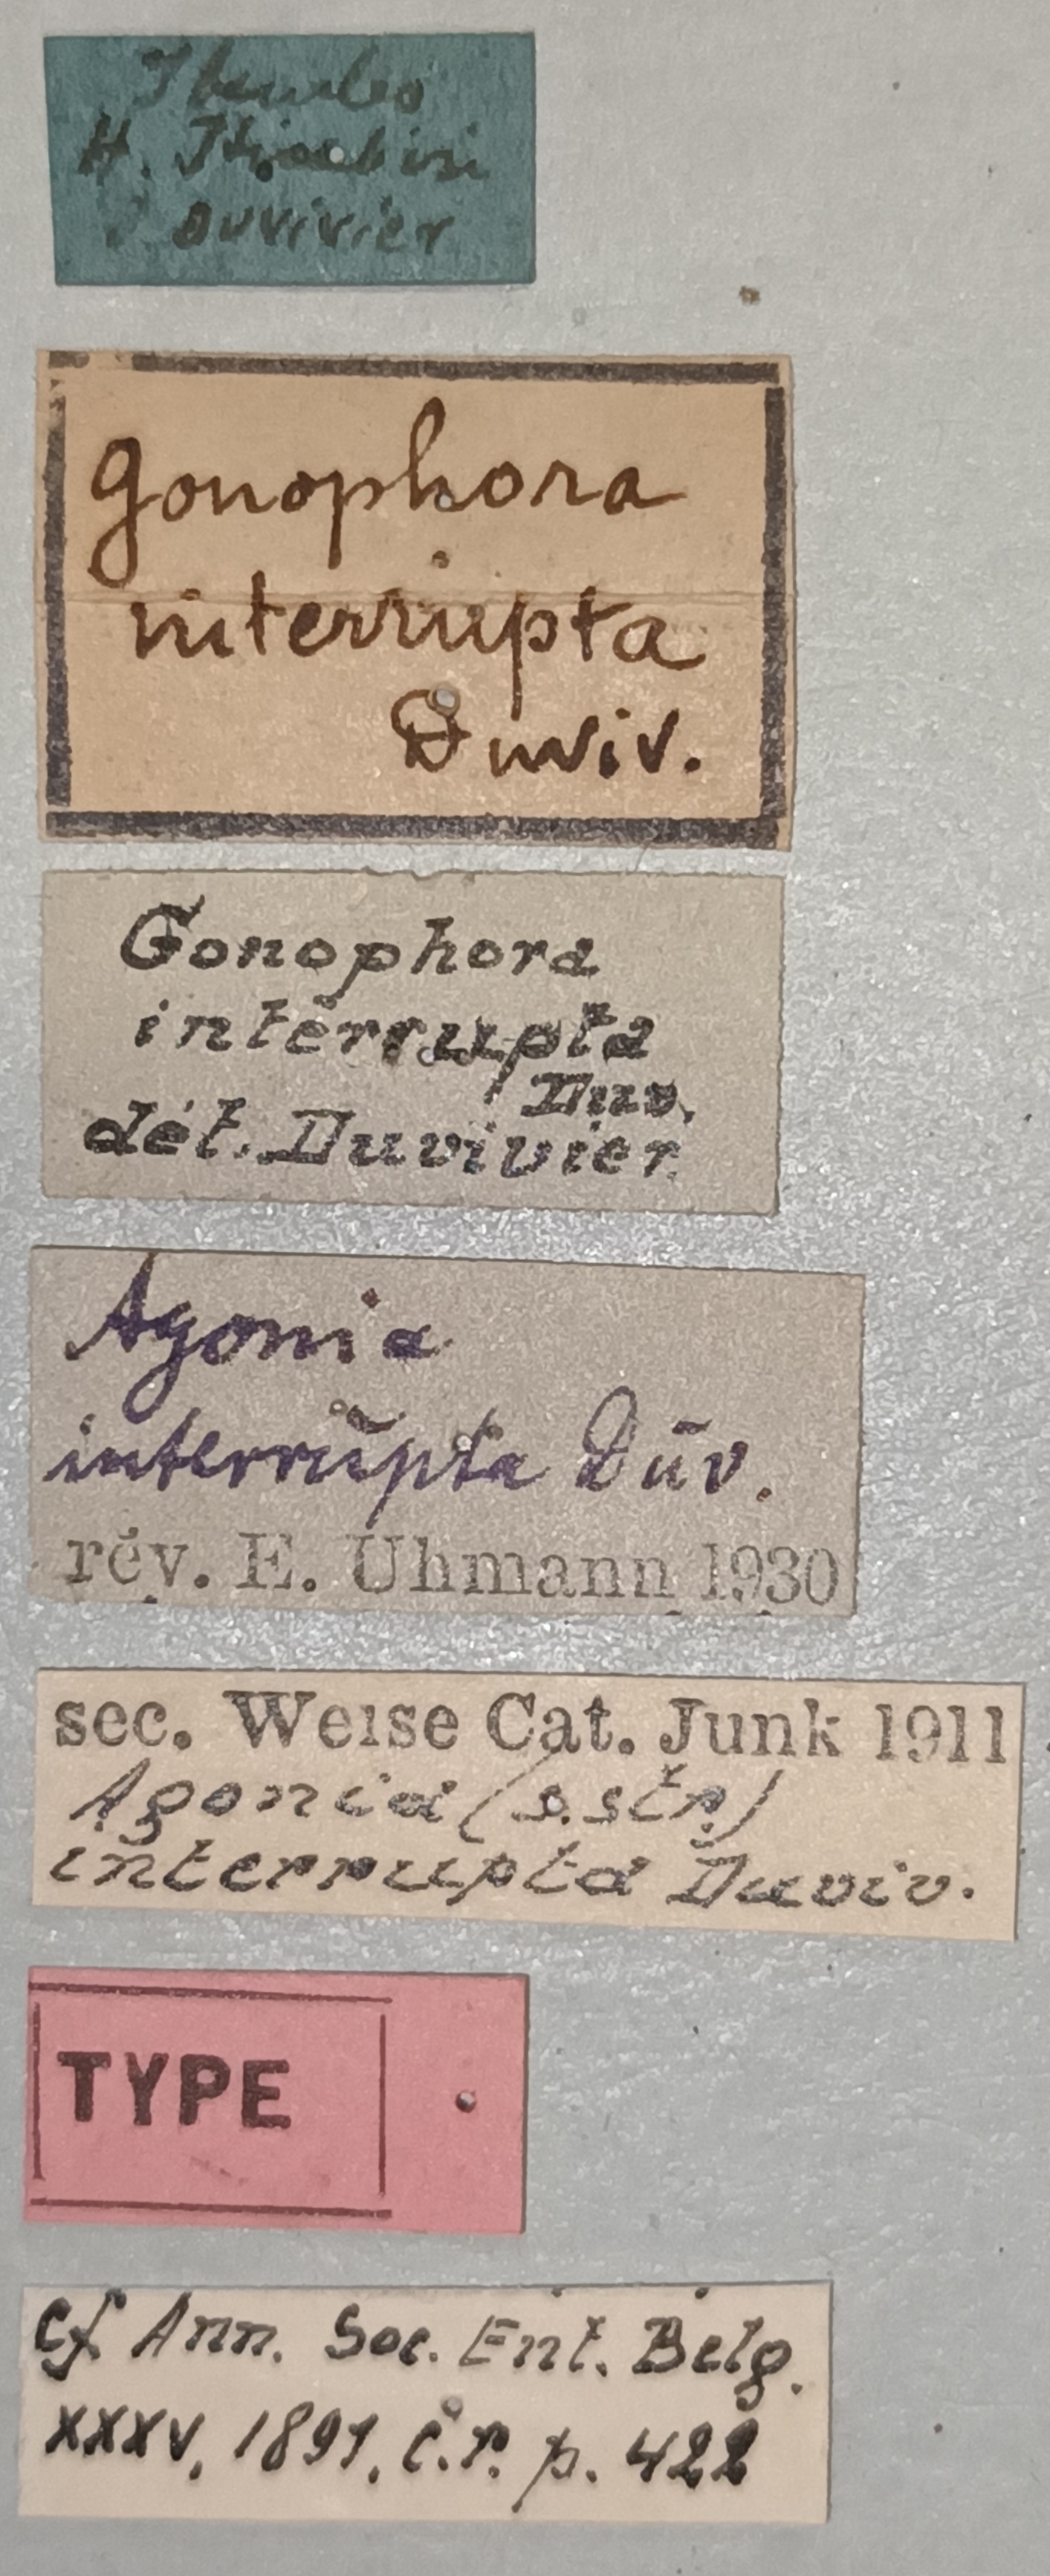 H.
Duvivier
Gonophora
interrupta
Duviv.
Gonophora
interrupta
Duv.
dét. Duvivier
Agonia
interrŭpta Dūv.
rév. E. Uhmann 1930
sec. Weise Cat. Junk 1911
Agonia (s.str.)
interrupta Duviv.
TYPE
cf Ann. Soc. Ent. Belg.
XXXV, 1891, C.r. p. 422